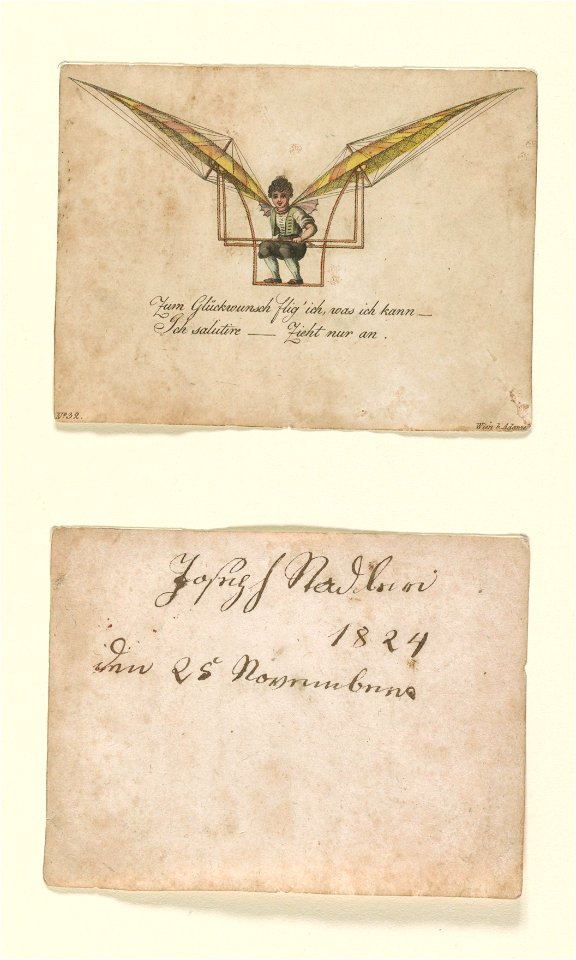 Zum Glückwunsch flig' ich, was ich kann —
Ich salutire — Zieht nur an.
Nº 32.
Wien b. Adame
Joseph Stadler
1824
den 25 November